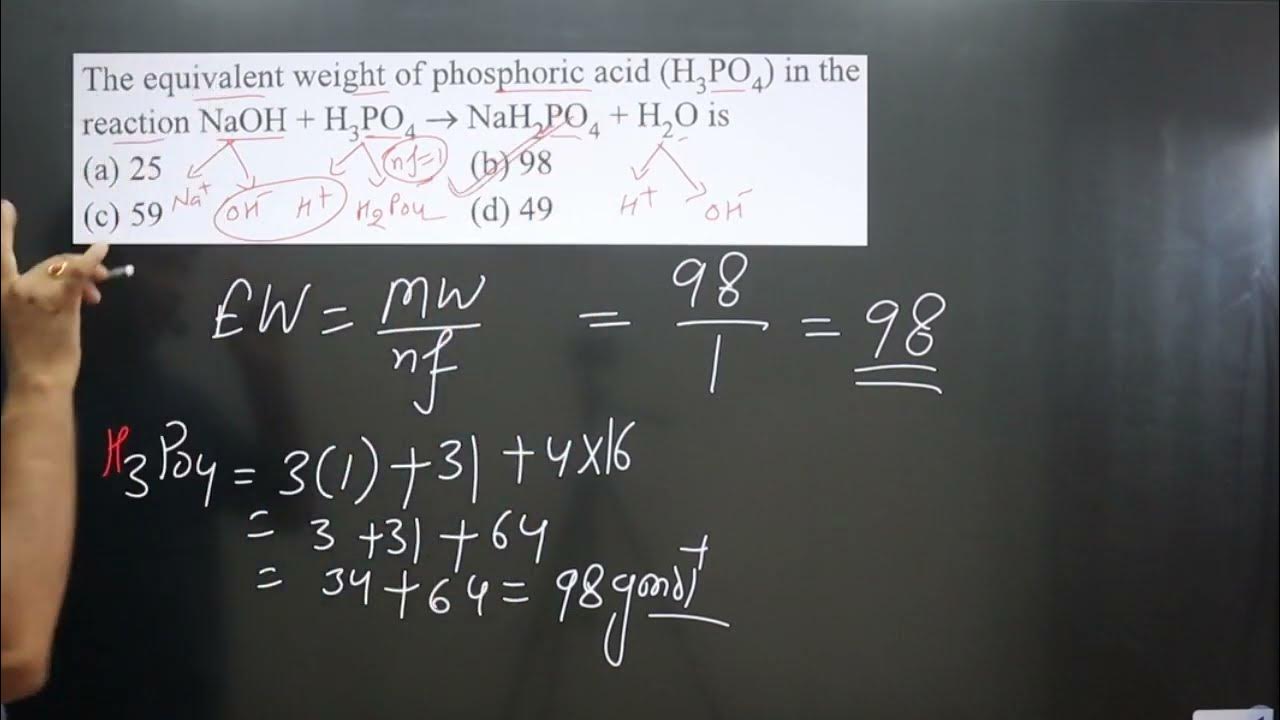 The equivalent weight of phosphoric acid (H₃PO₄) in the
reaction NaOH + H₃PO₄ → NaH₂PO₄ + H₂O is
(a) 25 nf=1 (b) 98
(c) 59 Na⁺ OH⁻ H⁺ H₂PO₄⁻ (d) 49 H⁺ OH⁻
EW = MW/nf = 98/1 = 98
H₃PO₄ = 3(1) + 31 + 4×16
= 3 + 31 + 64
= 34 + 64 = 98